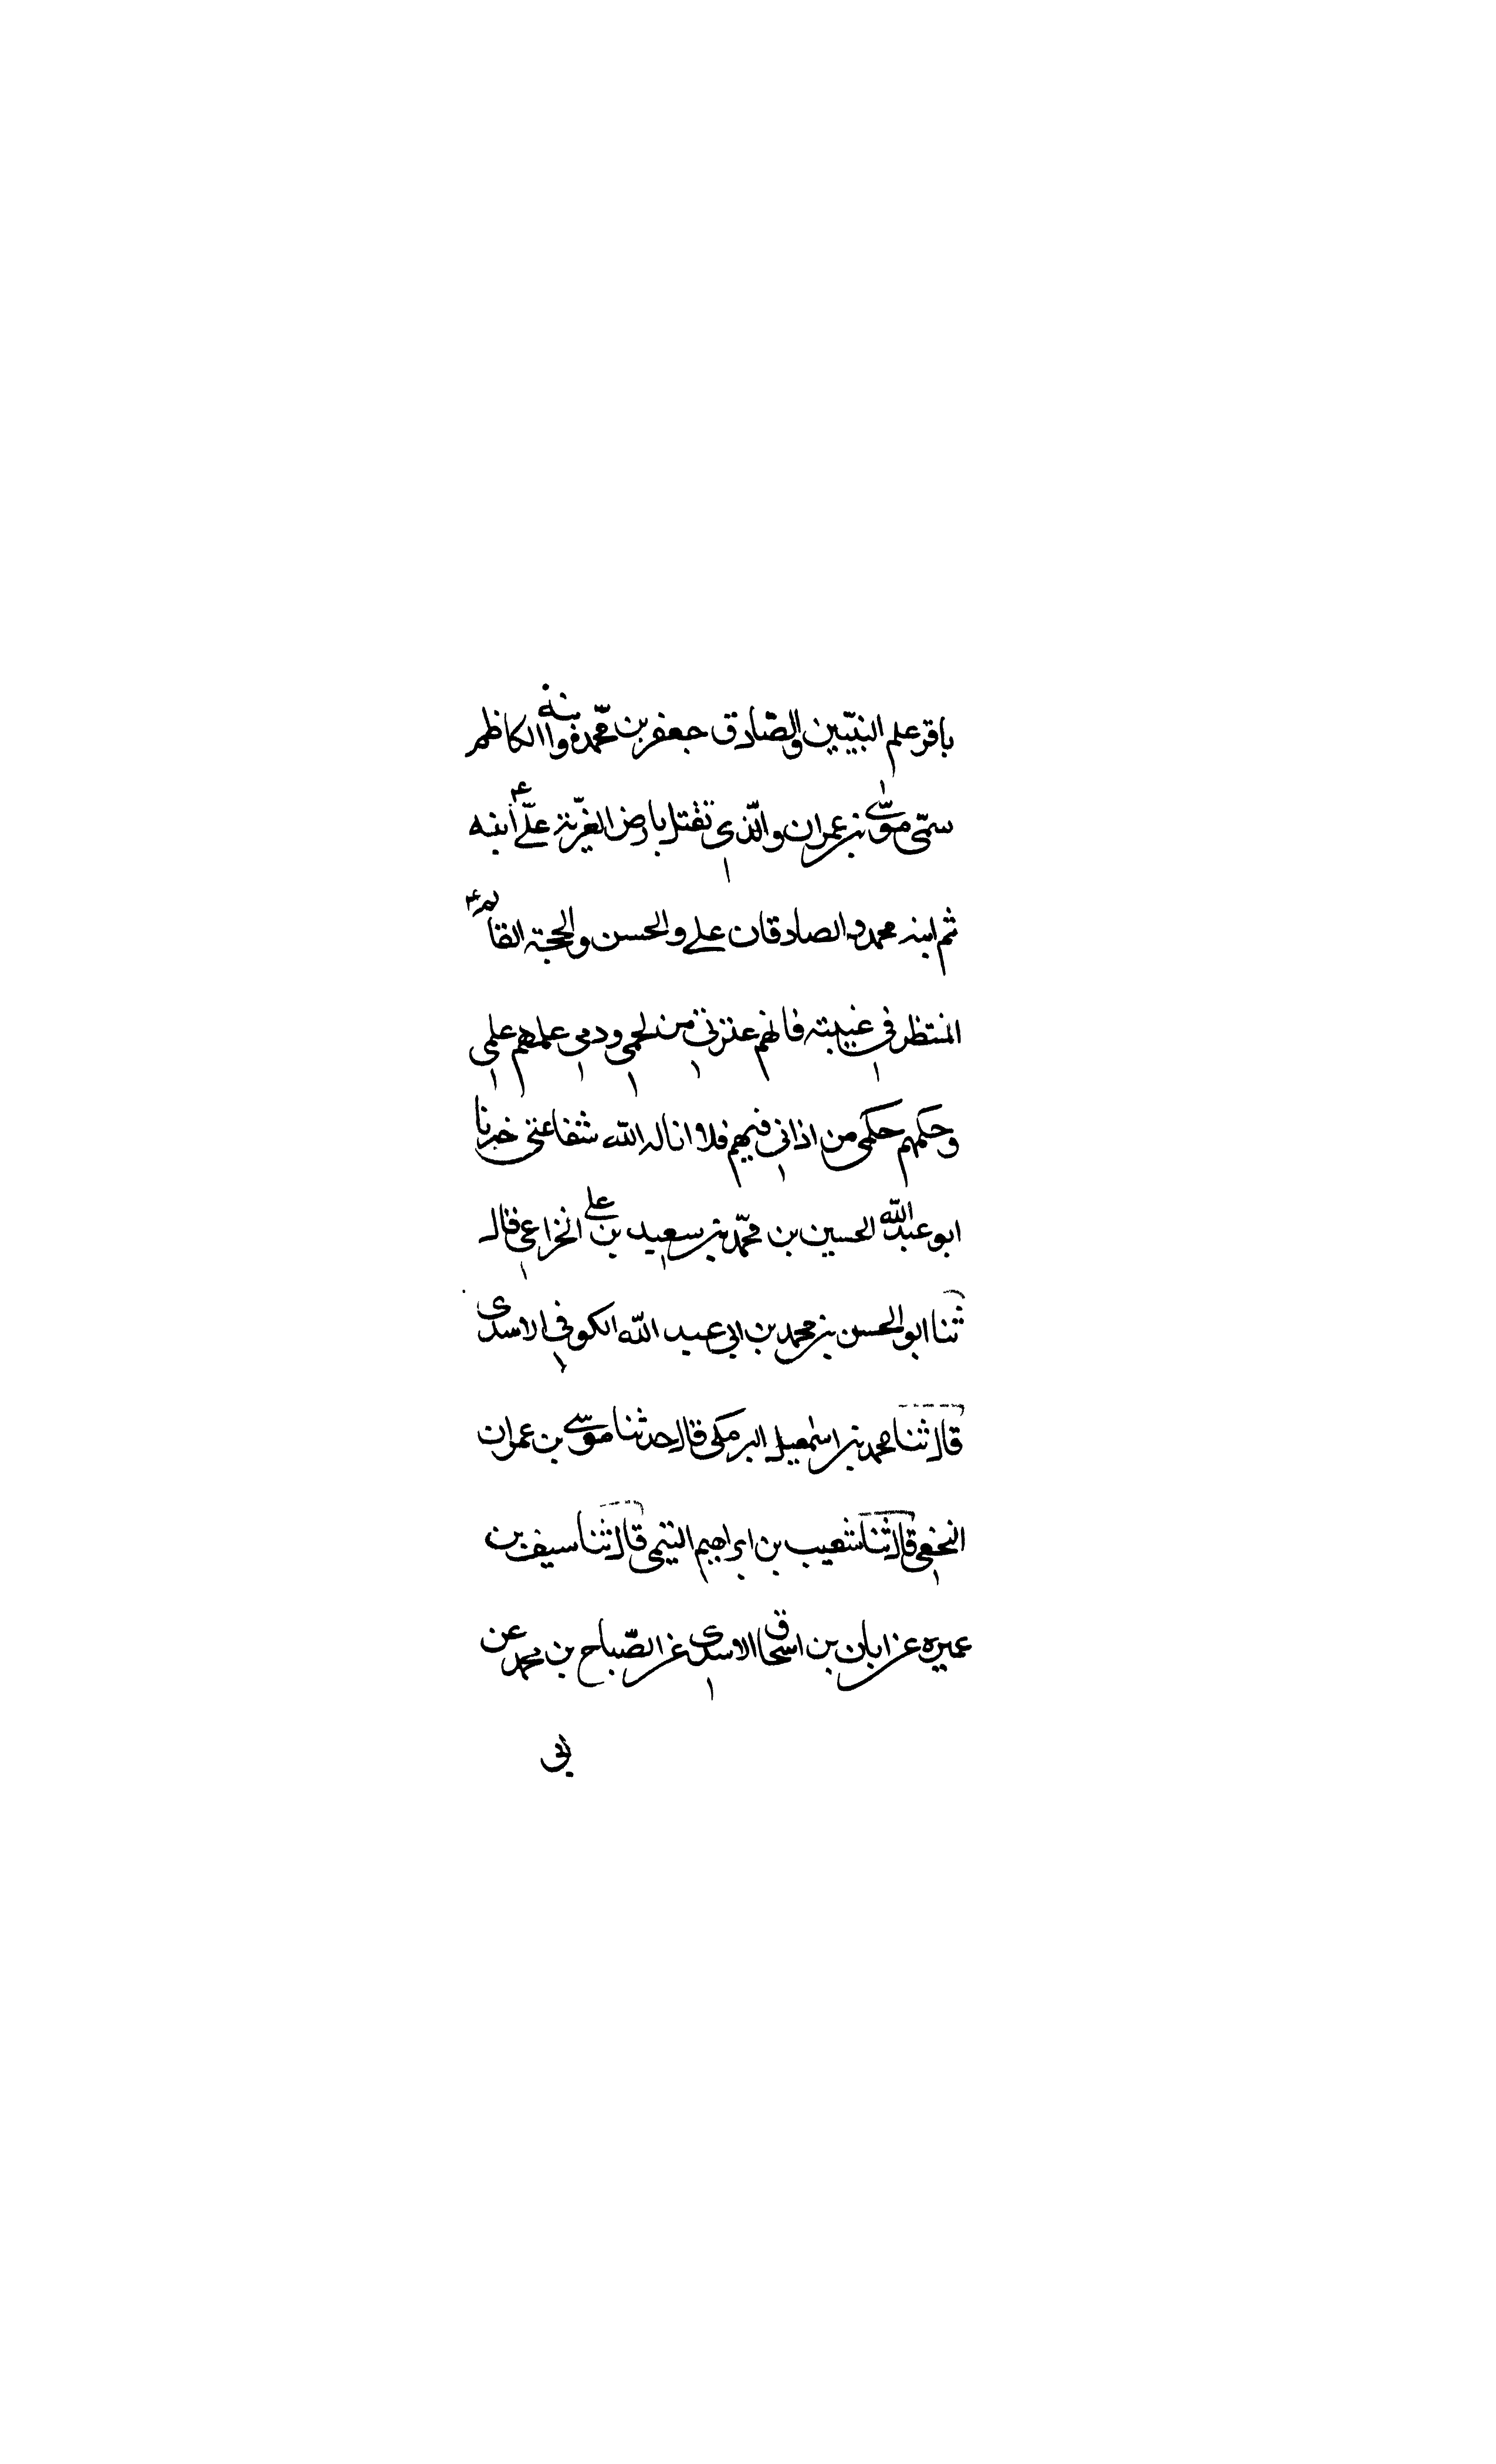 باقر علم النبيّين والصّادق جعفر بن محمّد وابنه الكاظم
سمّى موسى بن عمران والّذي تقتل بارض الغربة علىّ ع ابنه
ثم ابنه محمد والصادقان علي والحسن والحجة القائم ع
المنتظر في غيبته فانهم عترتي من لحمي ودمي علمهم علمي
وحكمهم حكمي من اذاني فيهم فلا اناله الله شفاعتي خبرنا
ابو عبد الله الحسين بن محمّد بن سعيد بن علي الخزاعي قال
ثنا ابو الحسن بن محمد بن ابي عبد الله الكوفي الاسدي
قال ثنا محمد بن اسمعيل البرمكي قال حدثنا موسى بن عمران
النخعي قال ثنا شعيب بن ابراهيم التيمي قال ثنا سيف بن
عميره عن ابان بن اسحاق الاسدي عن الصّباح بن محمد عن